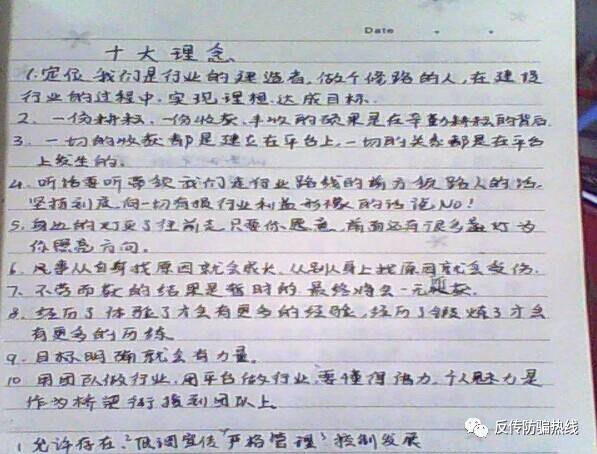 Date
十大理念
1.定位 我们是行业的建造者,做个修路的人,在建设
行业的过程中,实现理想.达成目标.
2、一份耕耘,一份收获,丰收的硕果是在辛勤耕耘的背后.
3、一切的收获都是建立在平台上,一切的关系都是在平台
上发生的.
4.听话要听带领我们走行业路线的前方领路人的话.
坚持制度,向一切有损行业利益形象的话说No!
5.身边的灯灭了往前走 只要你愿意,前面还有很多盏灯为
你照亮方向.
6.凡事从自身找原因就会成长,从别人身上找原因就会受伤.
7、不劳而获的结果是暂时的.最终将会一无所获.
8、经历了体验了才会有更多的经验,经历了锻炼了才会
有更多的历练
9、目标明确就会有力量.
10 用团队做行业,用平台做行业,要懂得借力,个人魅力是
作为桥梁衔接到团队上.
1 允许存在、"低调宣传""严格管理"控制发展
反传防骗热线